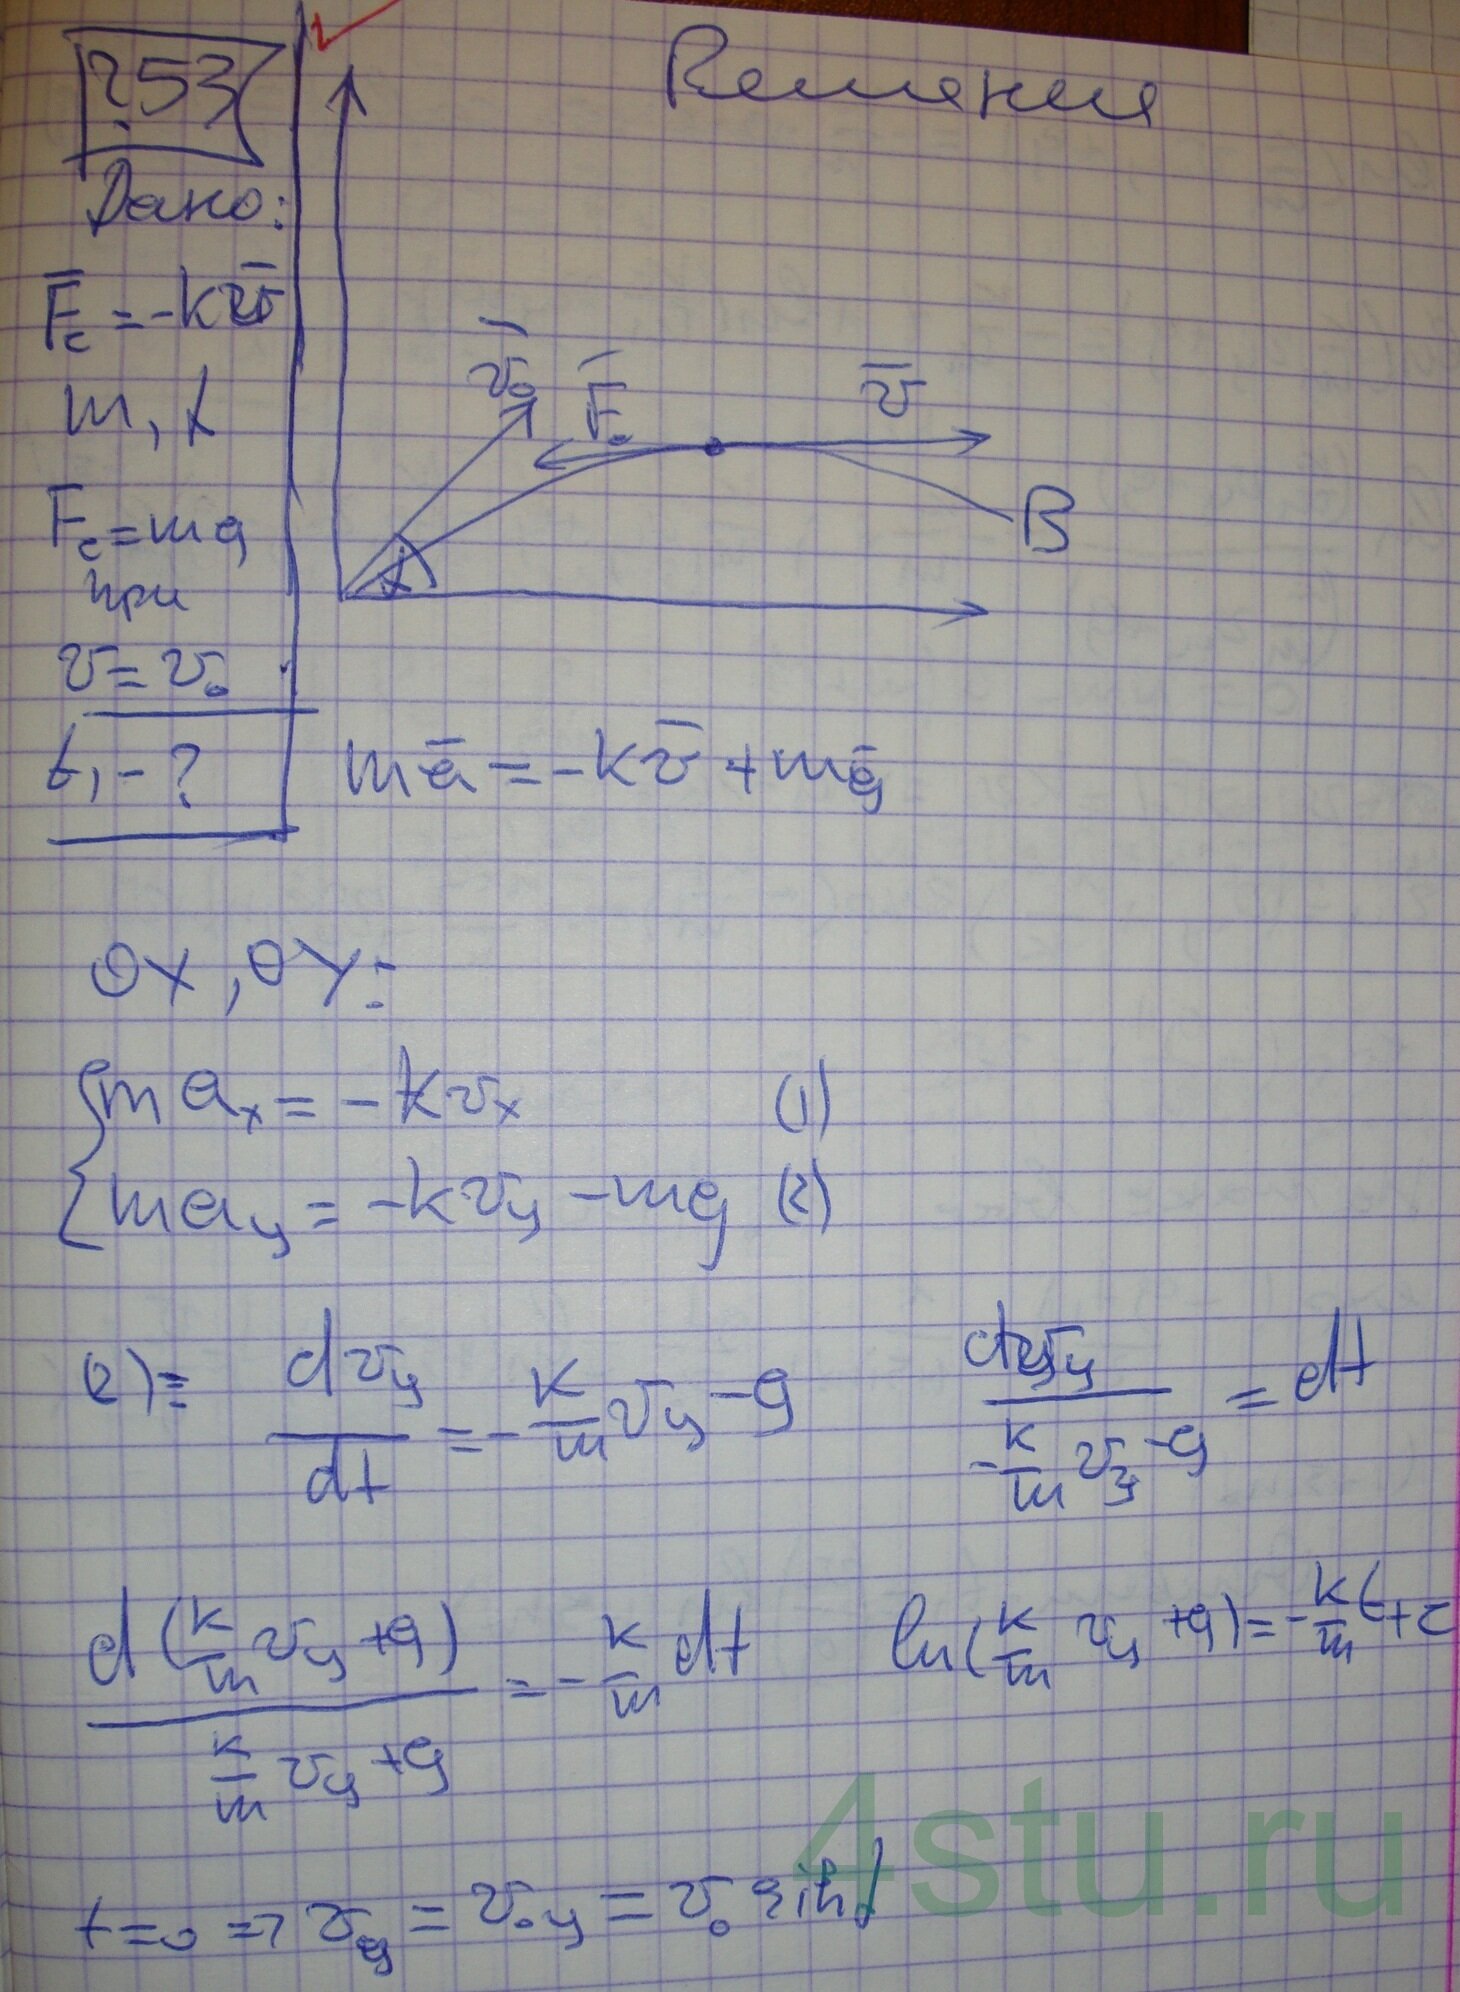 253
Решения
Дано:
F̄c = -kv̄
m, α
Fc = mg
при
v = v₀
t₁ - ?
v̄₀
F̄c
v̄
α
B
mā = -kv̄ + mḡ
OX, OY:
{ maₓ = -kvₓ (1)
{ maᵧ = -kvᵧ - mg (2)
2) = dvᵧ/dt = -k/m vᵧ - g    dvᵧ/(-k/m vᵧ - g) = dt
d(k/m vᵧ + g)/(k/m vᵧ + g) = -k/m dt    ln(k/m vᵧ + g) = -k/m t + c
t = 0 => vᵧ = v₀ᵧ = v₀ sin α
4stu.ru